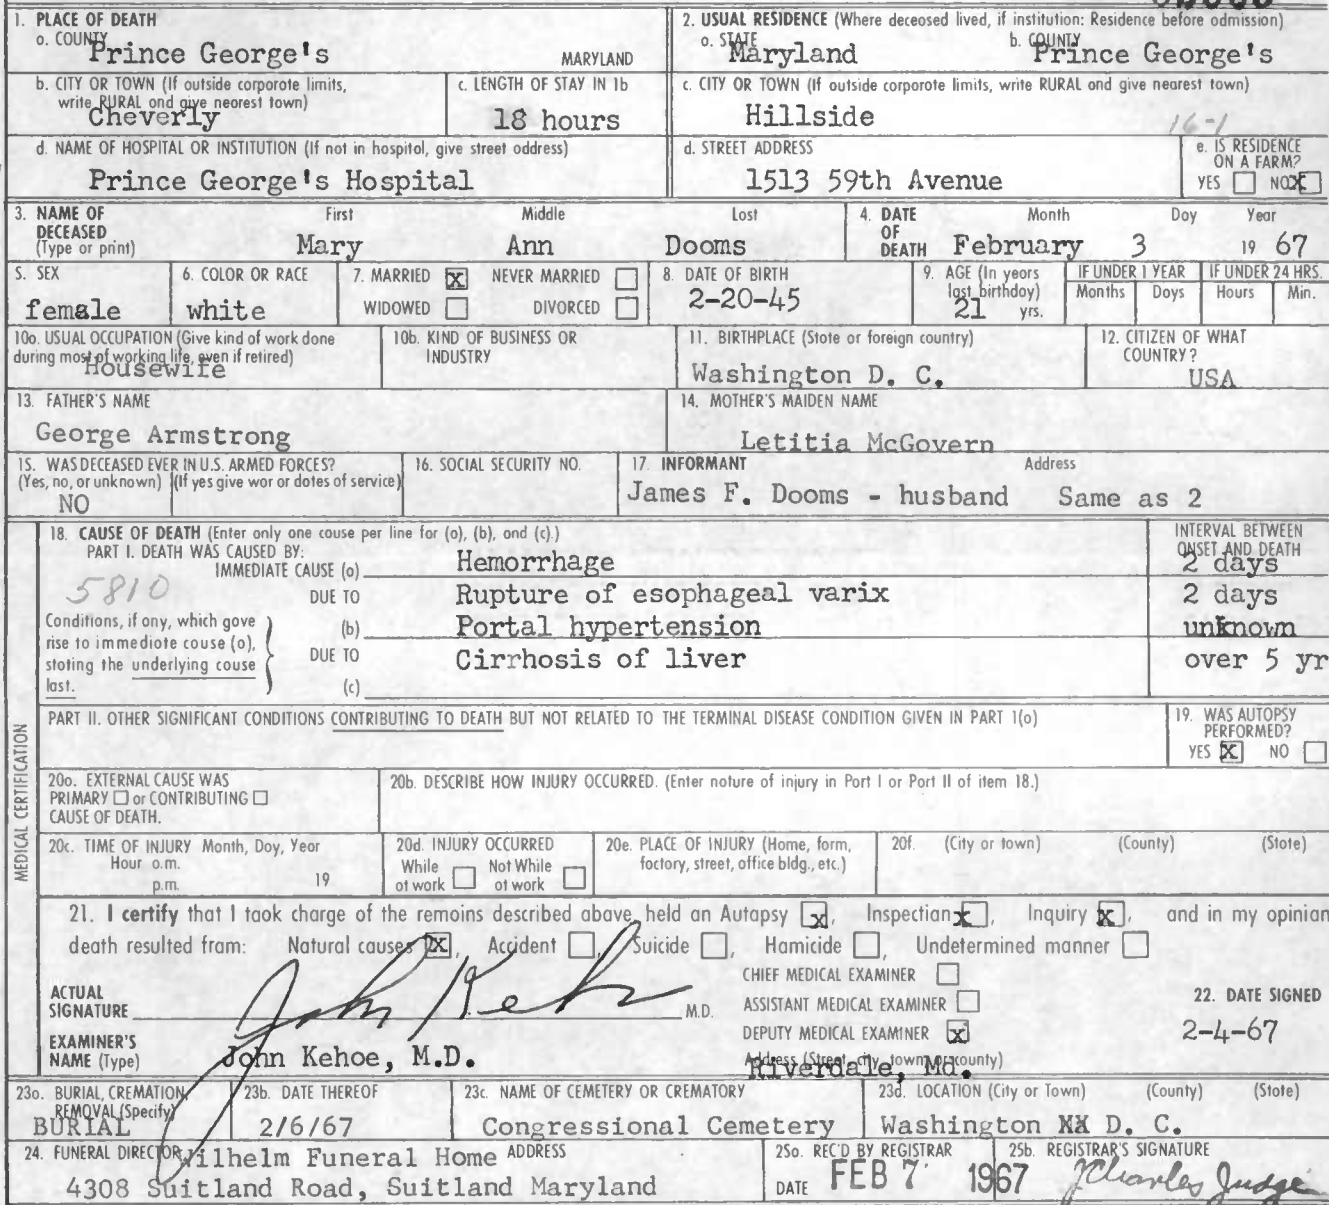 1. PLACE OF DEATH
a. COUNTY Prince George's MARYLAND
2. USUAL RESIDENCE (Where deceased lived, if institution: Residence before admission)
a. STATE Maryland b. COUNTY Prince George's
b. CITY OR TOWN (If outside corporate limits, write RURAL and give nearest town)
Cheverly
c. LENGTH OF STAY IN 1b
18 hours
c. CITY OR TOWN (If outside corporate limits, write RURAL and give nearest town)
Hillside
16-1
d. NAME OF HOSPITAL OR INSTITUTION (If not in hospital, give street address)
Prince George's Hospital
d. STREET ADDRESS
1513 59th Avenue
e. IS RESIDENCE ON A FARM?
YES NO X
3. NAME OF DECEASED (Type or print)
First Middle Last
Mary Ann Dooms
4. DATE OF DEATH
Month Day Year
February 3 19 67
5. SEX
female
6. COLOR OR RACE
white
7. MARRIED X NEVER MARRIED
WIDOWED DIVORCED
8. DATE OF BIRTH
2-20-45
9. AGE (In years last birthday)
21 yrs.
IF UNDER 1 YEAR
Months Days
IF UNDER 24 HRS.
Hours Min.
10a. USUAL OCCUPATION (Give kind of work done during most of working life, even if retired)
Housewife
10b. KIND OF BUSINESS OR INDUSTRY
11. BIRTHPLACE (State or foreign country)
Washington D. C.
12. CITIZEN OF WHAT COUNTRY?
USA
13. FATHER'S NAME
George Armstrong
14. MOTHER'S MAIDEN NAME
Letitia McGovern
15. WAS DECEASED EVER IN U.S. ARMED FORCES?
(Yes, no, or unknown) (If yes give war or dates of service)
NO
16. SOCIAL SECURITY NO.
17. INFORMANT Address
James F. Dooms - husband Same as 2
MEDICAL CERTIFICATION
18. CAUSE OF DEATH (Enter only one cause per line for (a), (b), and (c).)
INTERVAL BETWEEN ONSET AND DEATH
PART I. DEATH WAS CAUSED BY:
IMMEDIATE CAUSE (a) Hemorrhage 2 days
5810
DUE TO Rupture of esophageal varix 2 days
Conditions, if any, which gave rise to immediate cause (a), stating the underlying cause last.
(b) Portal hypertension unknown
DUE TO Cirrhosis of liver over 5 yr
(c)
PART II. OTHER SIGNIFICANT CONDITIONS CONTRIBUTING TO DEATH BUT NOT RELATED TO THE TERMINAL DISEASE CONDITION GIVEN IN PART 1(a)
19. WAS AUTOPSY PERFORMED?
YES X NO
20a. EXTERNAL CAUSE WAS
PRIMARY or CONTRIBUTING
CAUSE OF DEATH.
20b. DESCRIBE HOW INJURY OCCURRED. (Enter nature of injury in Part I or Part II of item 18.)
20c. TIME OF INJURY Month, Day, Year
Hour a.m.
p.m. 19
20d. INJURY OCCURRED
While at work Not While at work
20e. PLACE OF INJURY (Home, farm, factory, street, office bldg., etc.)
20f. (City or town) (County) (State)
21. I certify that I took charge of the remains described above, held an Autopsy X, Inspection X, Inquiry X, and in my opinion
death resulted from: Natural causes X, Accident, Suicide, Homicide, Undetermined manner
CHIEF MEDICAL EXAMINER
ACTUAL SIGNATURE John Kehoe M.D.
ASSISTANT MEDICAL EXAMINER
22. DATE SIGNED
DEPUTY MEDICAL EXAMINER X
2-4-67
EXAMINER'S NAME (Type) John Kehoe, M.D.
Address (Street, city, town, or county)
Riverdale, Md.
23a. BURIAL, CREMATION, REMOVAL (Specify)
BURIAL
23b. DATE THEREOF
2/6/67
23c. NAME OF CEMETERY OR CREMATORY
Congressional Cemetery
23d. LOCATION (City or Town) (County) (State)
Washington XX D. C.
24. FUNERAL DIRECTOR ADDRESS
Wilhelm Funeral Home
4308 Suitland Road, Suitland Maryland
25a. REC'D BY REGISTRAR
DATE FEB 7 1967
25b. REGISTRAR'S SIGNATURE
J Charles Judge